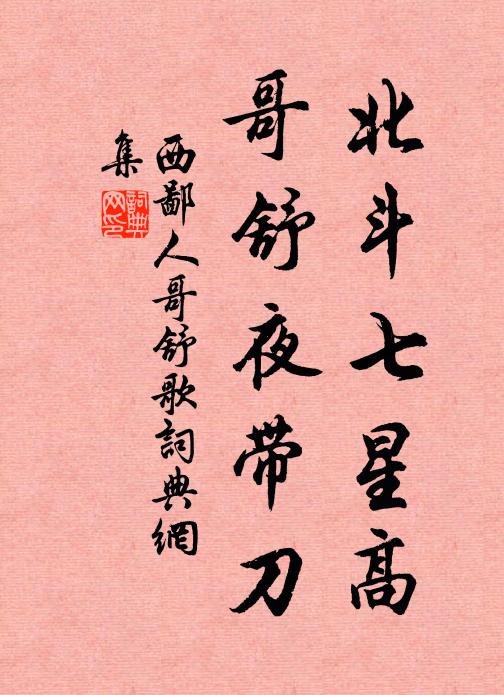 北斗七星高
哥舒夜带刀
西鄙人哥舒歌詞典網
集
詞典網印